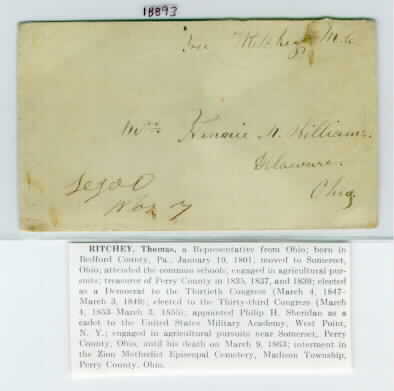 18893
Ritchey M.C
Mrs Kinnie N. Williams.
Delaware.
Ohio
Nov 7
RITCHEY, Thomas, a Representative from Ohio; born in
Bedford County, Pa., January 19, 1801; moved to Somerset,
Ohio; attended the common schools; engaged in agricultural pur-
suits; treasurer of Perry County in 1835, 1837, and 1839; elected
as a Democrat to the Thirtieth Congress (March 4, 1847-
March 3, 1849); elected to the Thirty-third Congress (March
4, 1853-March 3, 1855); appointed Philip H. Sheridan as
a cadet to the United States Military Academy, West Point,
N. Y.; engaged in agricultural pursuits near Somerset, Perry
County, Ohio, until his death on March 9, 1863; interment in
the Zion Methodist Episcopal Cemetery, Madison Township,
Perry County, Ohio.